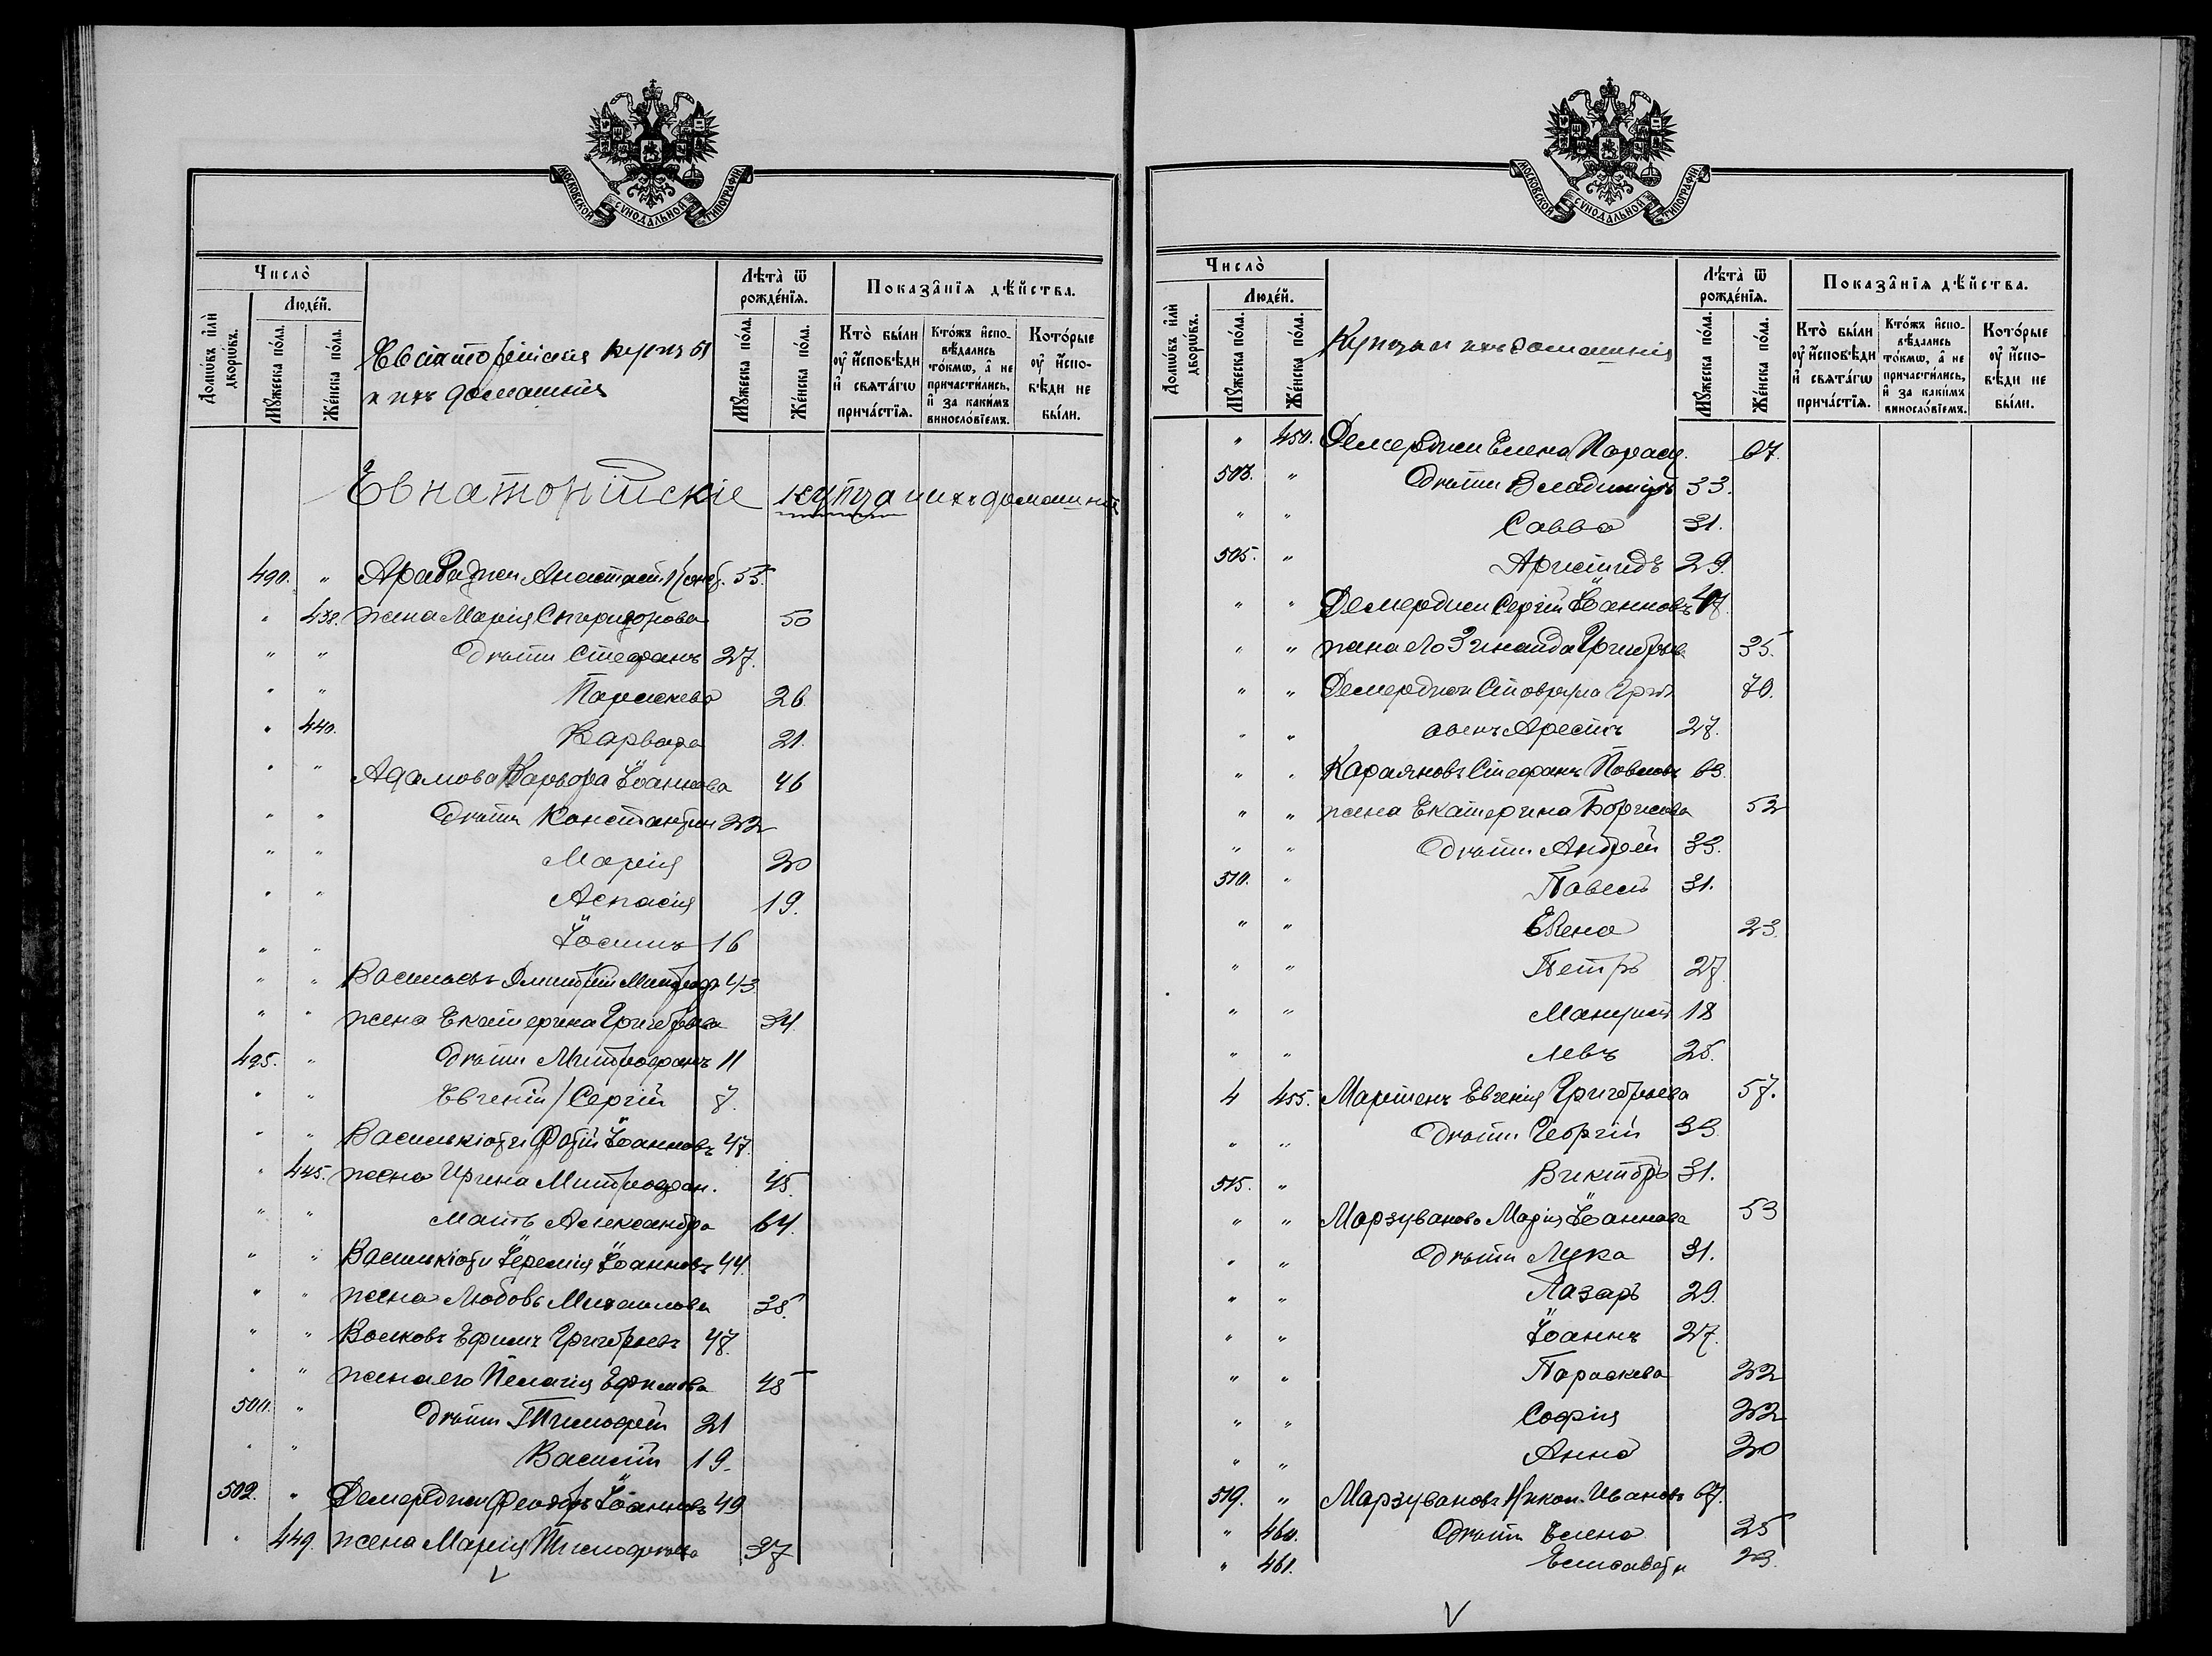 МОСКОВСКОЙ СѴНОДАЛЬНОЙ ТИПОГРАФІИ
Число̀
Домѡвъ и҆лѝ дворѡвъ.
Люде́й.
Мꙋ́жеска по́ла.
Же́нска по́ла.
Евпаторійскія купцы
и ихъ домашнія
Лѣта̀ ѿ рожде́нїѧ.
Мꙋ́жеска по́ла.
Же́нска по́ла.
Показа̑нїѧ дѣ́йства.
Кто̀ бы́ли ᲂу҆ и҆сповѣ́ди и҆ свѧта́гѡ прича́стїѧ.
Кто́жъ и҆сповѣ́дались то́кмѡ, а҆ не причасти́лись, и҆ за каки́мъ винословїемъ.
Кото́рые ᲂу҆ и҆сповѣ́ди не бы́ли.
Евпаторійскіе купца и ихъ домашнія
490. " Арабаджи Анастасій 53.
" 438. жена Марія Спиридонова 50
" " дѣти Стефанъ 27.
" " Параскева 26
" 440. Варвара 21.
" " Адамова Варвара Іоаннова 46
" " дѣти Константин 22
" " Марія 20
" " Аспасія 19.
" " Іосифъ 16
" " Васильевъ Дмитрій Митроф 43
" " жена Екатерина Григорьева 34
495. " дѣти Митрофанъ 11
" " Евгеній / Сергій 7.
" " Василькіоти Фотій Іоанновъ 47.
" 445. жена Ирина Митрофан. 45.
" " мать Александра 64.
" " Василькіоти Іеремія Іоанновъ 44.
" " жена Любовь Михаилова 38.
" " Волковъ Ефимъ Григорьевъ 48.
" " жена его Пелагія Ефимова 45
500. " дѣти Тимофей 21
" " Василій 19.
502. " Демерджи Феодоръ Іоанновъ 49
" 449. жена Марія Тимофеева 37
МОСКОВСКОЙ СѴНОДАЛЬНОЙ ТИПОГРАФІИ
Число̀
Домѡвъ и҆лѝ дворѡвъ.
Люде́й.
Мꙋ́жеска по́ла.
Же́нска по́ла.
Купцы и ихъ домашнія
Лѣта̀ ѿ рожде́нїѧ.
Мꙋ́жеска по́ла.
Же́нска по́ла.
Показа̑нїѧ дѣ́йства.
Кто̀ бы́ли ᲂу҆ и҆сповѣ́ди и҆ свѧта́гѡ прича́стїѧ.
Кто́жъ и҆сповѣ́дались то́кмѡ, а҆ не причасти́лись, и҆ за каки́мъ винословїемъ.
Кото́рые ᲂу҆ и҆сповѣ́ди не бы́ли.
" 450. Демерджи Елена Параск. 67.
503. " дѣти Владиміръ 33.
" " Савва 31.
505. " Аристидъ 29.
" " Демерджи Сергій Іоанновъ 47.
" " жена его Зинаида Григорьева 35.
" " Демерджи Ставрула 70.
" " Арестъ 27.
" " Караяновъ Стефанъ Павловъ 63.
" " жена Екатерина Борисова 52
" " дѣти Андрей 33.
510. " Павелъ 31.
" " Елена 23.
" " Петръ 27
" " Мануилъ 18
" " Левъ 25.
4 455. Мартенъ Евгенія Григорьева 57.
" " дѣти Георгій 33
515. " Викторъ 31.
" " Марзуванова Марія Іоаннова 53
" " дѣти Лука 31.
" " Лазарь 29.
" " Іоаннъ 27.
" " Параскева 22
" " Софія 22
" " Анна 20
519. " Марзувановъ Никол. Ивановъ 67.
" 460. дѣти Елена 25
" 461. Елисавета 23.